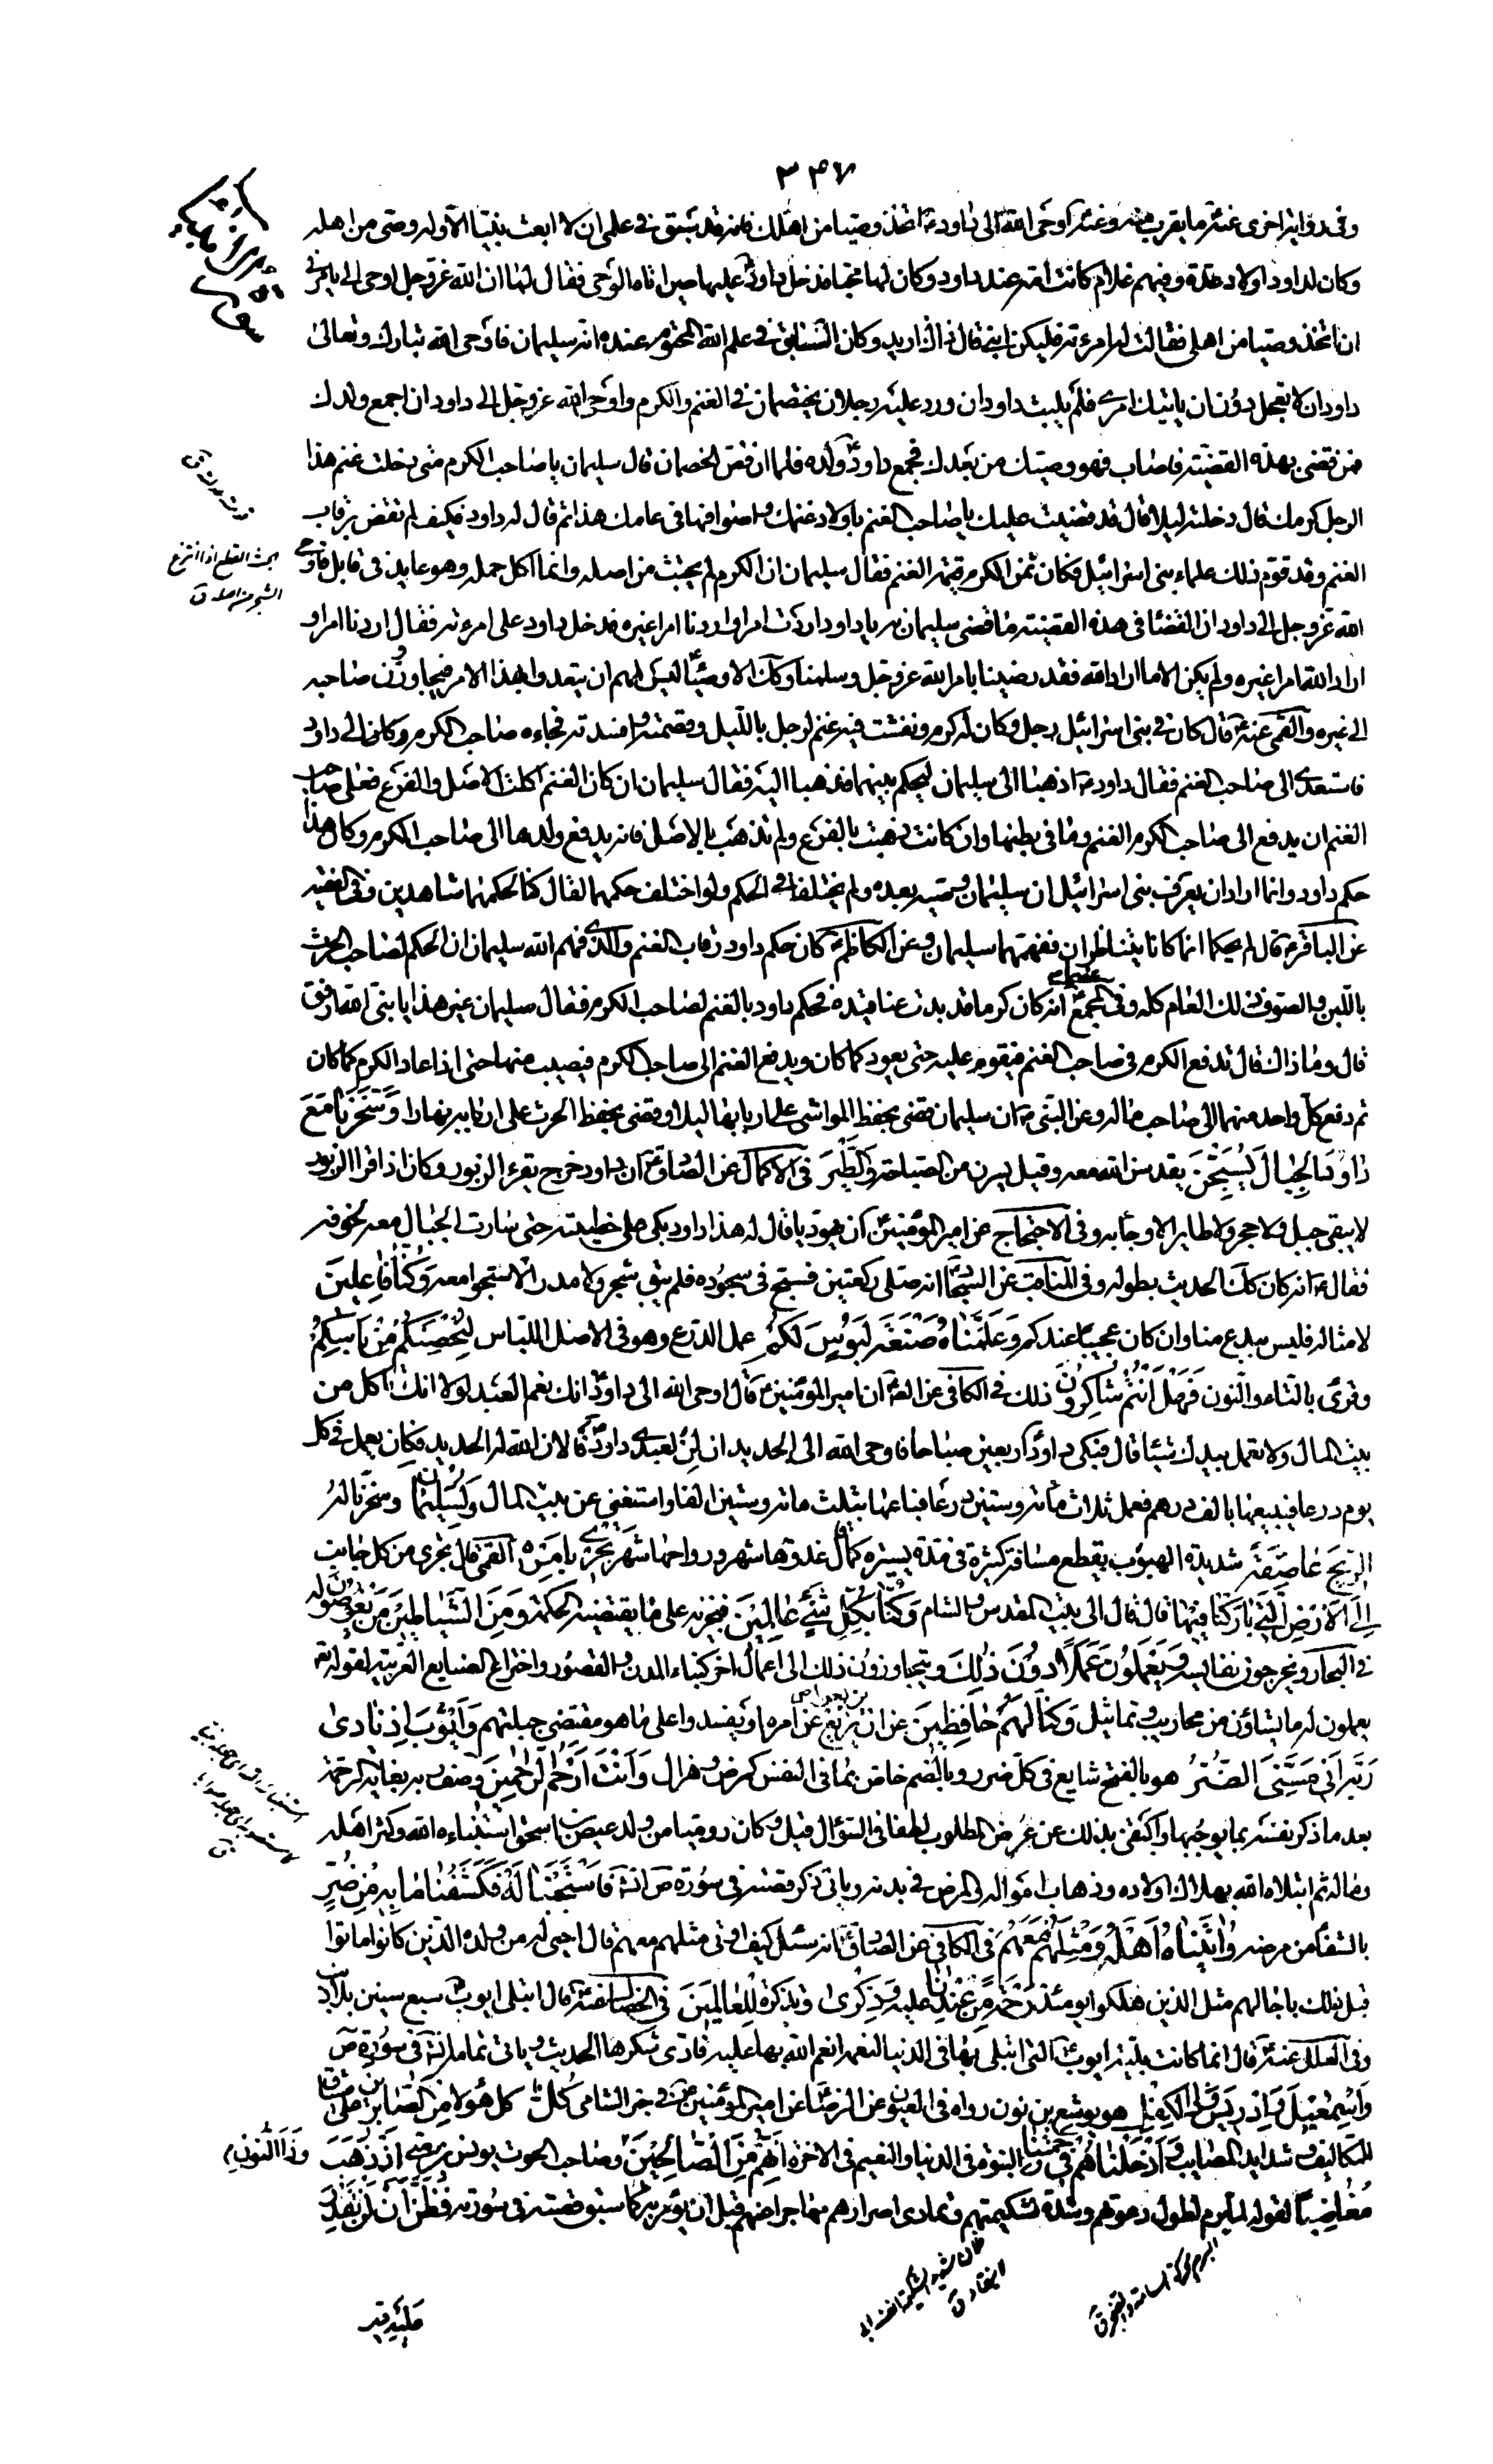 ٣٤٧
وفى رواية اخرى عنه ما يقرب منه وعنه اوحى الله الى داود ان اتخذ وصيا من اهلك فانه قد سبق فى علمى ان لا ابعث نبيا الا وله وصى من اهله
وكان لداود اولاد عدة وفيهم غلام كانت امه عند داود وكان لها محبا فدخل داود عليها حين اتاه الوحى فقال لها ان الله عز وجل اوحى الى يامرنى
ان اتخذ وصيا من اهلى فقالت له امرءته فليكن ابنى قال ذاك اريد وكان السابق فى علم الله المحتوم عنده انه سليمان فاوحى الله تبارك وتعالى
داود ان لا تعجل دون ان ياتيك امرى فلم يلبث داود ان ورد عليه رجلان يختصمان فى الغنم والكرم واوحى الله عز وجل الى داود ان اجمع ولدك
فمن قضى بهذه القضية فاصاب فهو وصيك من بعدك فجمع داود ولده فلما ان قص الخصمان قال سليمان يا صاحب الكرم متى دخلت غنم هذا
الرجل كرمك قال دخلته ليلا قال قد قضيت عليك يا صاحب الغنم باولاد غنمك واصوافها فى عامك هذا ثم قال له داود فكيف لم تقض برقاب
الغنم وقد قوم ذلك علماء بنى اسرائيل فكان ثمن الكرم قيمة الغنم فقال سليمان ان الكرم لم يجتث من اصله وانما اكل حمله وهو عايد فى قابل فاوحى
الله عز وجل الى داود ان القضاء فى هذه القضية ما قضى سليمان به يا داود اردت امرا واردنا امرا غيره فدخل داود على امرءته فقال اردنا امرا و
اراد الله امرا غيره ولم يكن الا ما اراد الله فقد رضينا بامر الله عز وجل وسلمنا وكذلك الاوصياء ليس لهم ان يتعدوا بهذا الامر فيجاوزون صاحبه
الى غيره والقمى عنه قال كان فى بنى اسرائيل رجل وكان له كرم ونفشت فيه غنم لرجل بالليل وقضمته وافسدته فجاءه صاحب الكرم وكان الى داود
فاستعدى الى صاحب الغنم فقال داود اذهبا الى سليمان ليحكم بينهما فذهبا اليه فقال سليمان ان كان الغنم اكلت الاصل والفرع فعلى صاحب
الغنم ان يدفع الى صاحب الكرم الغنم وما فى بطنها وان كانت ذهبت بالفرع ولم تذهب بالاصل فانه يدفع ولدها الى صاحب الكرم وكان هذا
حكم داود وانما اراد ان يعرف بنى اسرائيل ان سليمان وصيه بعده ولم يختلفا فى الحكم ولو اختلف حكمهما لقال كنا لحكمهما شاهدين وفى الفقيه
عن الباقر قال لم يحكما انما كانا يتناظران ففهمها سليمان وعن الكاظم كان حكم داود رقاب الغنم والذى فهم الله سليمان ان الحكم لصاحب الحرث
باللبن والصوف ذلك العام كله وفى المجمع عنهما انه كان كرما قد بدت عناقيده فحكم داود بالغنم لصاحب الكرم فقال سليمان غير هذا يا نبى الله ارفق
قال وما ذاك قال تدفع الكرم فى صاحب الغنم فيقوم عليه حتى يعود كما كان ويدفع الغنم الى صاحب الكرم فيصيب منها حتى اذا عاد الكرم كما كان
ثم دفع كل واحد منهما الى صاحب ماله وعن النبى ان سليمان قضى بحفظ المواشى على اربابها ليلا وقضى بحفظ الحرث على اربابه نهارا وَسَخَّرْنَا مَعَ
دَاوُدَ الْجِبَالَ يُسَبِّحْنَ يقدسن الله معه وقيل يسرن من السباحة وَالطَّيْرَ فى الاكمال عن الصادق ان داود خرج يقرء الزبور وكان اذا قرا الزبور
لا يبقى جبل ولا حجر ولا طاير الا وجابه وفى الاحتجاج عن امير المؤمنين ان يهوديا قال له هذا داود بكى على خطيئته حتى سارت الجبال معه لخوفه
فقال انه كان كذلك الحديث بطوله وفى المناقب عن السجاد انه صلى ركعتين فسبح فى سجوده فلم يبق شجر ولا مدر الا سبحوا معه وَكُنَّا فَاعِلِينَ
لامثاله فليس ببدع منا وان كان عجيبا عندكم وَعَلَّمْنَاهُ صَنْعَةَ لَبُوسٍ لَكُمْ عمل الدرع وهو فى الاصل اللباس لِتُحْصِنَكُمْ مِنْ بَأْسِكُمْ
وقرئ بالتاء والنون فَهَلْ أَنْتُمْ شَاكِرُونَ ذلك فى الكافى عن الصادق ان امير المؤمنين قال اوحى الله الى داود انك نعم العبد لولا انك تاكل من
بيت المال ولا تعمل بيدك شيئا قال فبكى داود اربعين صباحا فاوحى الله الى الحديد ان لن لعبدى داود فالان الله له الحديد فكان يعمل فى كل
يوم درعا فيبيعها بالف درهم فعمل ثلاث مائة وستين درعا فباعها بثلث مائة وستين الفا واستغنى عن بيت المال وَلِسُلَيْمَانَ وسخرنا له
الرِّيحَ عَاصِفَةً شديدة الهبوب يقطع مسافة كثيرة فى مدة يسيرة كما قال غدوها شهر ورواحها شهر تَجْرِي بِأَمْرِهِ القمى قال تجرى من كل جانب
إِلَى الْأَرْضِ الَّتِي بَارَكْنَا فِيهَا قال قال الى بيت المقدس والشام وَكُنَّا بِكُلِّ شَيْءٍ عَالِمِينَ فنجزيه على ما يقتضيه الحكمة وَمِنَ الشَّيَاطِينِ مَنْ يَغُوصُونَ لَهُ
فى البحار ويخرجون نفايسه وَيَعْمَلُونَ عَمَلًا دُونَ ذَلِكَ ويتجاوزون ذلك الى اعمال اخر كبناء المدن والقصور واختراع الصنايع الغريبة لقوله تعالى
يعملون له ما يشاؤن من محاريب وتماثيل وَكُنَّا لَهُمْ حَافِظِينَ عن ان يزيغ عن امره او يفسدوا على ما هو مقتضى جبلتهم وَأَيُّوبَ إِذْ نَادَى
رَبَّهُ أَنِّي مَسَّنِيَ الضُّرُّ هو بالفتح شايع فى كل ضرر وبالضم خاص بما فى النفس كمرض وهزال وَأَنْتَ أَرْحَمُ الرَّاحِمِينَ وصف ربه بغاية الرحمة
بعد ما ذكر نفسه بما يوجبها واكتفى بذلك عن عرض المطلوب لطفا فى السؤال قيل وكان روميا من ولد عيص بن اسحق استنباءه الله وكثر اهله
وماله ثم ابتلاه الله بهلاك اولاده وذهاب امواله والمرض فى بدنه وياتى ذكر قصته فى سورة ص انشاء فَاسْتَجَبْنَا لَهُ فَكَشَفْنَا مَا بِهِ مِنْ ضُرٍّ
بالشفاء من مرضه وَآتَيْنَاهُ أَهْلَهُ وَمِثْلَهُمْ مَعَهُمْ فى الكافى عن الصادق انه سئل كيف اوتى مثلهم معهم قال احيى له من ولده الذين كانوا ماتوا
قبل ذلك باجالهم مثل الذين هلكوا يومئذ رَحْمَةً مِنْ عِنْدِنَا عليه وَذِكْرَى وتذكرة لِلْعَابِدِينَ فى الخصال عنه قال ابتلى ايوب سبع سنين بلا ذنب
وفى العلل عنه قال انما كانت بلية ايوب التى ابتلى بها فى الدنيا لنعمة انعم الله بها عليه فادى شكرها الحديث وياتى تمامه انشاء فى سورة ص
وَإِسْمَعِيلَ وَإِدْرِيسَ وَذَا الْكِفْلِ هو يوشع بن نون رواه فى العيون عن الرضا عن امير المؤمنين فى خبر الشامى كُلٌّ كل هؤلاء مِنَ الصَّابِرِينَ على مشاق
التكاليف وشدايد المصايب وَأَدْخَلْنَاهُمْ فِي رَحْمَتِنَا النبوة فى الدنيا والنعيم فى الاخرة إِنَّهُمْ مِنَ الصَّالِحِينَ وَذَا النُّونِ وصاحب الحوت يونس بن متى إِذْ ذَهَبَ
مُغَاضِبًا لقومه لما برم لطول دعوتهم وشدة شكيمتهم وتمادى اصرارهم مهاجرا عنهم قبل ان يؤمر به كما سبق قصته فى سورته فَظَنَّ أَنْ لَنْ نَقْدِرَ
عَلَيْهِ
الجث القطع او انتزاع
الشجر من اصله ق